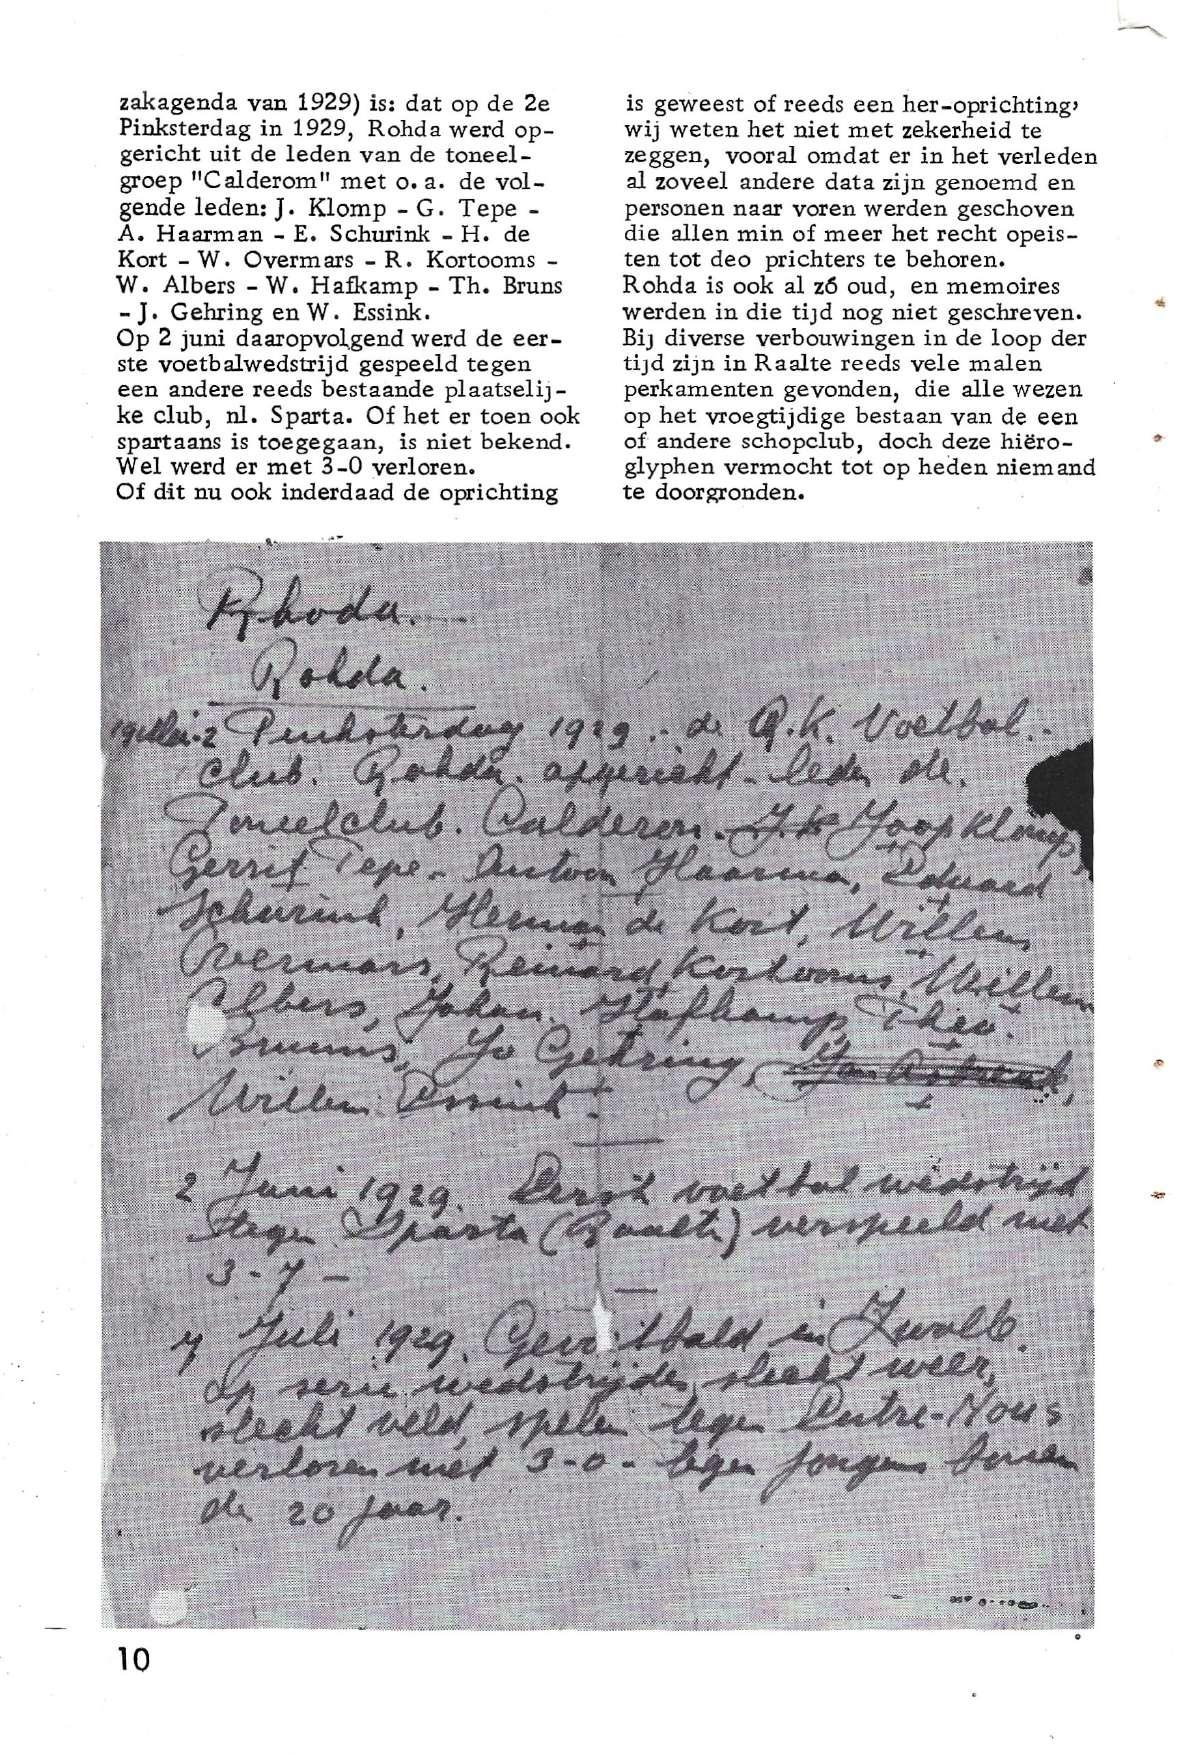 zakagenda van 1929) is: dat op de 2e
Pinksterdag in 1929, Rohda werd op-
gericht uit de leden van de toneel-
groep "Calderom" met o.a. de vol-
gende leden: J. Klomp - G. Tepe -
A. Haarman - E. Schurink - H. de
Kort - W. Overmars - R. Kortooms -
W. Albers - W. Hafkamp - Th. Bruns
- J. Gehring en W. Essink.
Op 2 juni daaropvolgend werd de eer-
ste voetbalwedstrijd gespeeld tegen
een andere reeds bestaande plaatselij-
ke club, nl. Sparta. Of het er toen ook
spartaans is toegegaan, is niet bekend.
Wel werd er met 3-0 verloren.
Of dit nu ook inderdaad de oprichting
is geweest of reeds een her-oprichting,
wij weten het niet met zekerheid te
zeggen, vooral omdat er in het verleden
al zoveel andere data zijn genoemd en
personen naar voren werden geschoven
die allen min of meer het recht opeis-
ten tot deo prichters te behoren.
Rohda is ook al zó oud, en memoires
werden in die tijd nog niet geschreven.
Bij diverse verbouwingen in de loop der
tijd zijn in Raalte reeds vele malen
perkamenten gevonden, die alle wezen
op het vroegtijdige bestaan van de een
of andere schopclub, doch deze hiëro-
glyphen vermocht tot op heden niemand
te doorgronden.
Rhoda.
Rohda.
2 Pinksterdag 1929. de R.K. Voetbal
club. Rohda. opgericht leden de
Toneelclub. Calderon. Joop Klomp
Gerrit Tepe - Antoon Haarman, Eduard
Schurink, Herman de Kort, Willem
Overmars, Reinard Kortooms, Willem
Albers, Johan Hafkamp, Theo
Bruuns, Jo Gehring,
Willem Essink.
2 Juni 1929. Eerste voetbal wedstrijd
tegen Sparta (Raalte) verspeeld met
3-7-
7 Juli 1929. Gevoetbald in Zwolle
op serie wedstrijden, slecht weer,
slecht veld, spelen tegen Entre-Nous
verloren met 3-0 - tegen jongens boven
de 20 jaar.
10